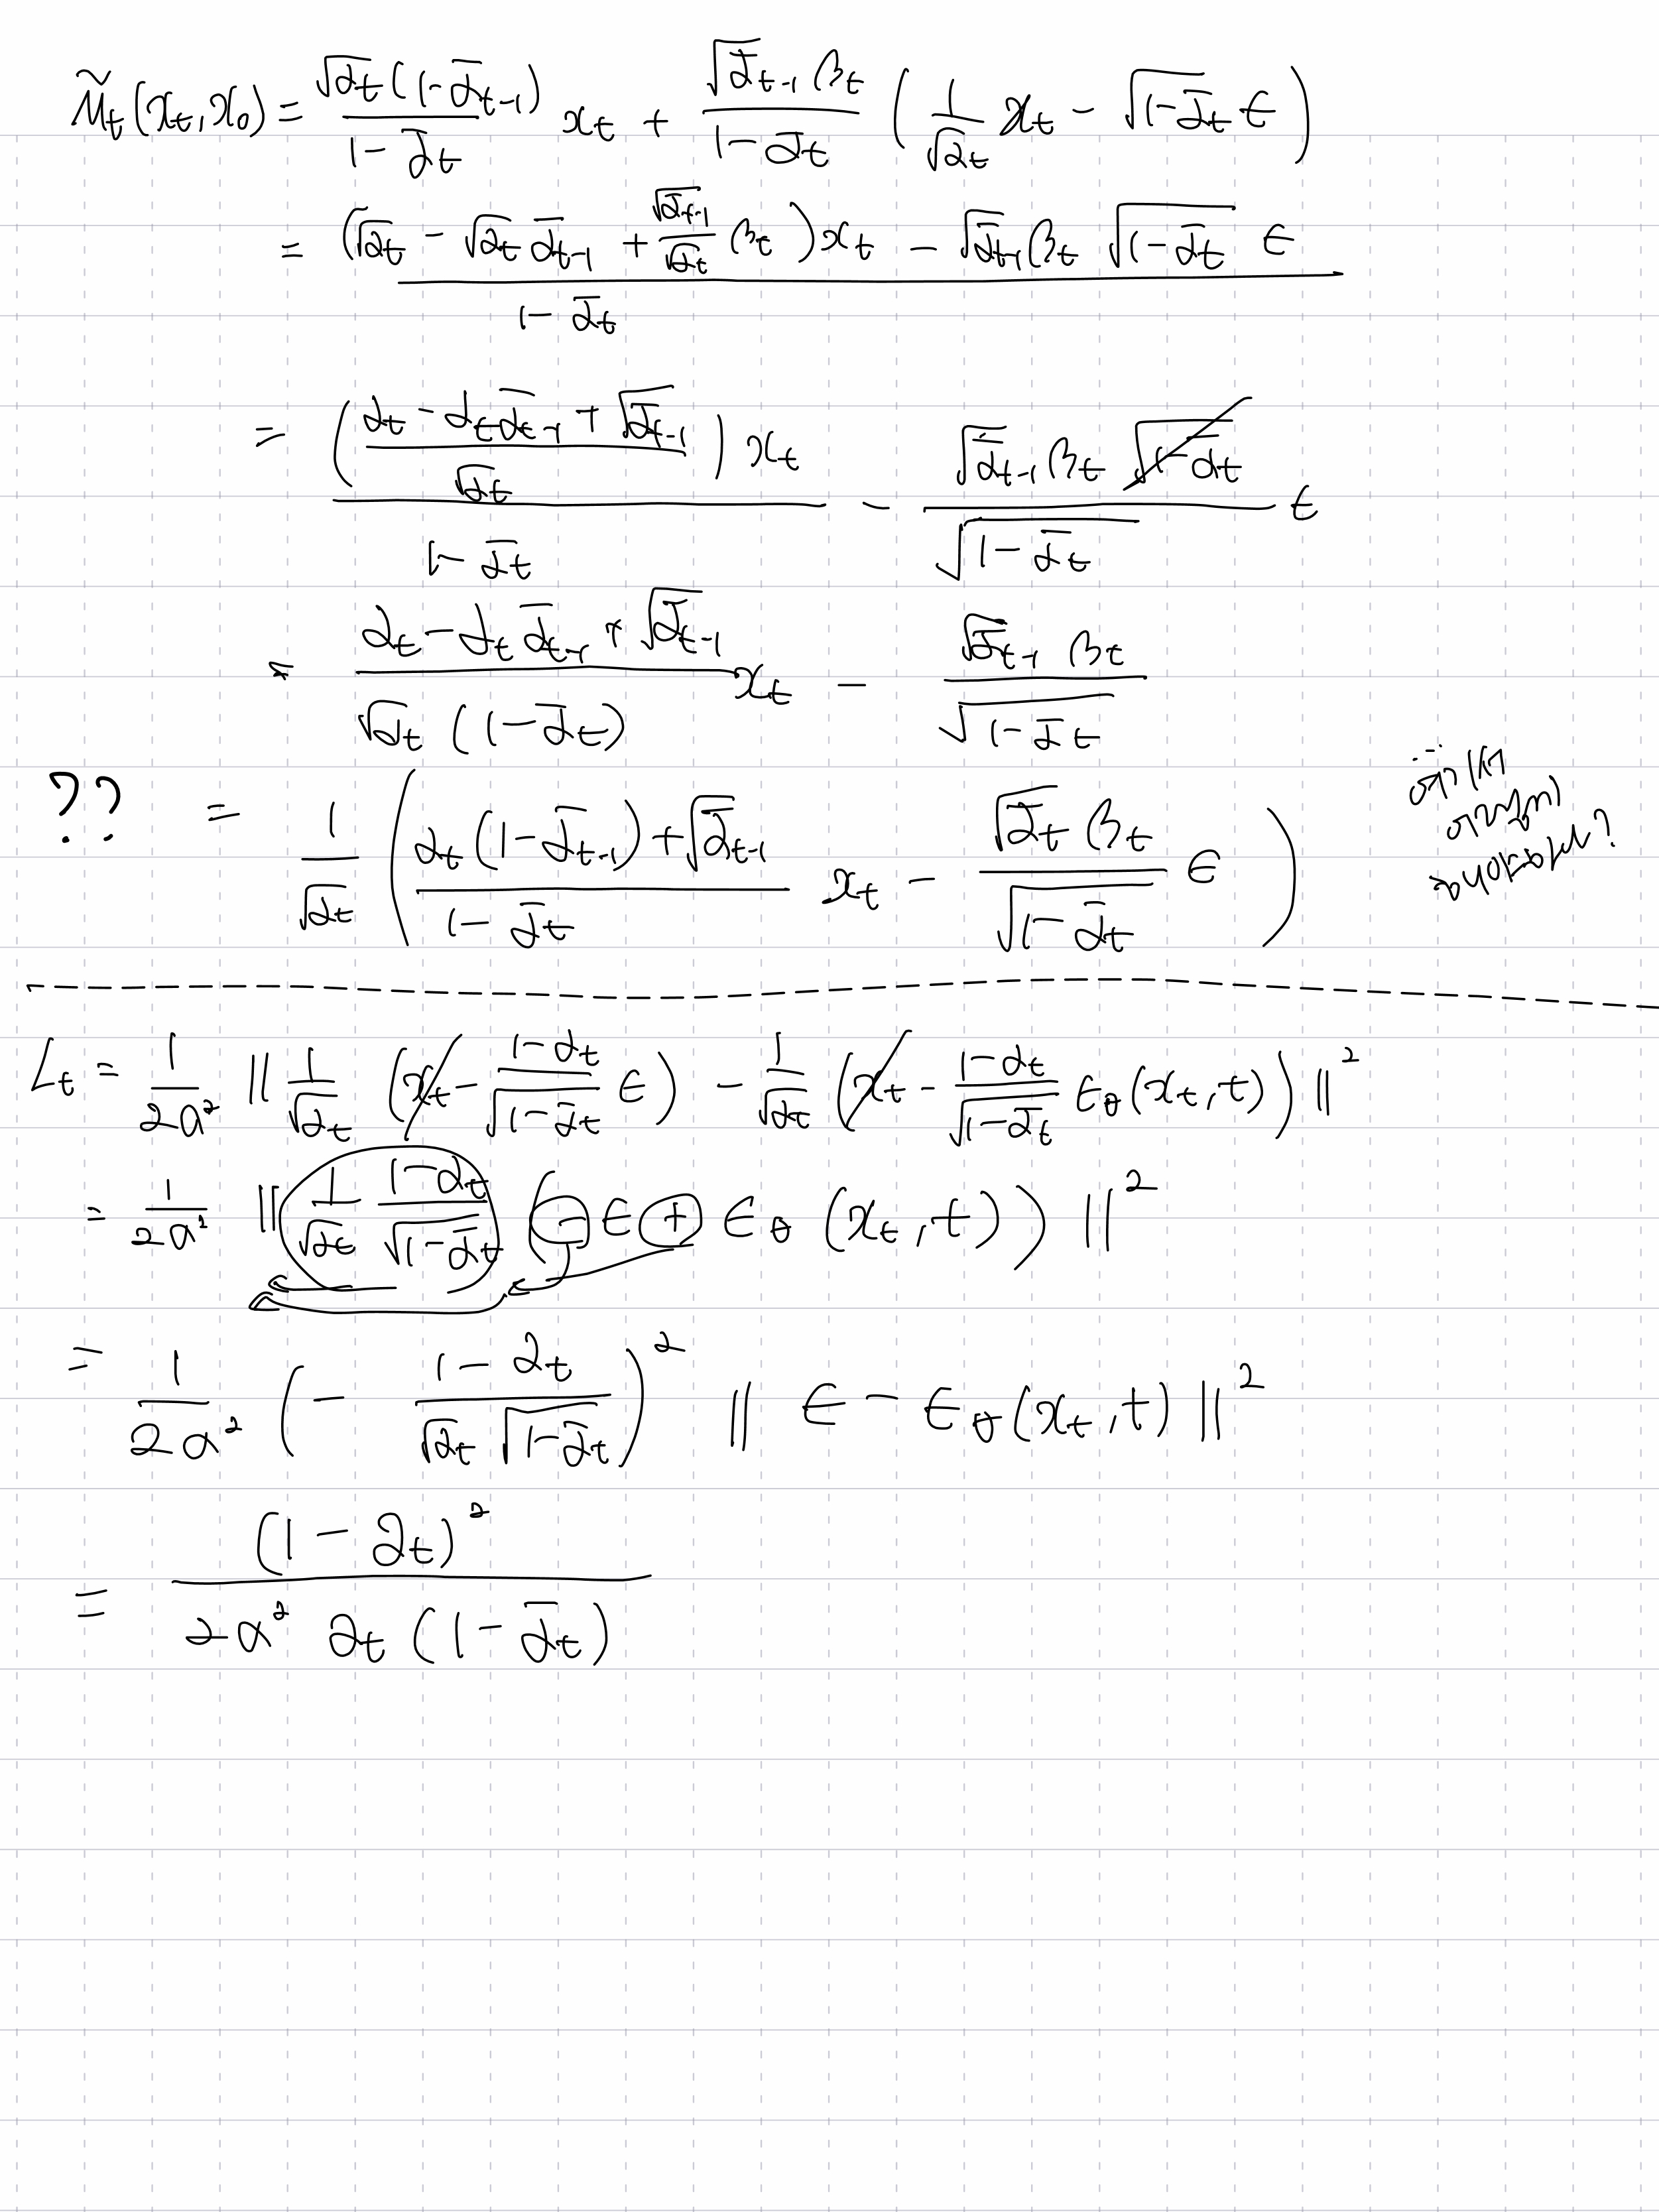 μ̃_t(x_t, x_0) = \frac{\sqrt{α_t}(1-\bar{α}_{t-1})}{1-\bar{α}_t} x_t + \frac{\sqrt{\bar{α}_{t-1}} β_t}{1-\bar{α}_t} ( \frac{1}{\sqrt{α_t}} x_t - \sqrt{1-\bar{α}_t} ε )
= \frac{(\sqrt{α_t} - \sqrt{α_t} \bar{α}_{t-1} + \frac{\sqrt{\bar{α}_{t-1}}}{\sqrt{α_t}} β_t) x_t - \sqrt{\bar{α}_{t-1}} β_t \sqrt{1-\bar{α}_t} ε}{1-\bar{α}_t}
= \frac{( \frac{α_t - α_t \bar{α}_{t-1} + \sqrt{\bar{α}_{t-1}}}{\sqrt{α_t}} ) x_t}{1-\bar{α}_t} - \frac{\sqrt{\bar{α}_{t-1}} β_t \sqrt{1-\bar{α}_t}}{\sqrt{1-\bar{α}_t}} ε
= \frac{α_t - α_t \bar{α}_{t-1} + \sqrt{\bar{α}_{t-1}}}{\sqrt{α_t} (1-\bar{α}_t)} x_t - \frac{\sqrt{\bar{α}_{t-1}} β_t}{\sqrt{1-\bar{α}_t}}
?? = \frac{1}{\sqrt{α_t}} ( \frac{α_t (1-\bar{α}_{t-1}) + \sqrt{\bar{α}_{t-1}}}{1-\bar{α}_t} x_t - \frac{\sqrt{\bar{α}_t} β_t}{\sqrt{1-\bar{α}_t}} ε )
L_t = \frac{1}{2σ^2} || \frac{1}{\sqrt{α_t}} ( x_t - \frac{1-α_t}{\sqrt{1-\bar{α}_t}} ε ) - \frac{1}{\sqrt{α_t}} ( x_t - \frac{1-α_t}{\sqrt{1-\bar{α}_t}} ε_θ(x_t, t) ) ||^2
= \frac{1}{2σ^2} || \frac{1}{\sqrt{α_t}} \frac{1-α_t}{\sqrt{1-\bar{α}_t}} ( - ε + ε_θ (x_t, t) ) ||^2
= \frac{1}{2σ^2} ( - \frac{1-α_t}{\sqrt{α_t} \sqrt{1-\bar{α}_t}} )^2 || ε - ε_θ(x_t, t) ||^2
= \frac{(1-α_t)^2}{2σ^2 α_t (1-\bar{α}_t)}